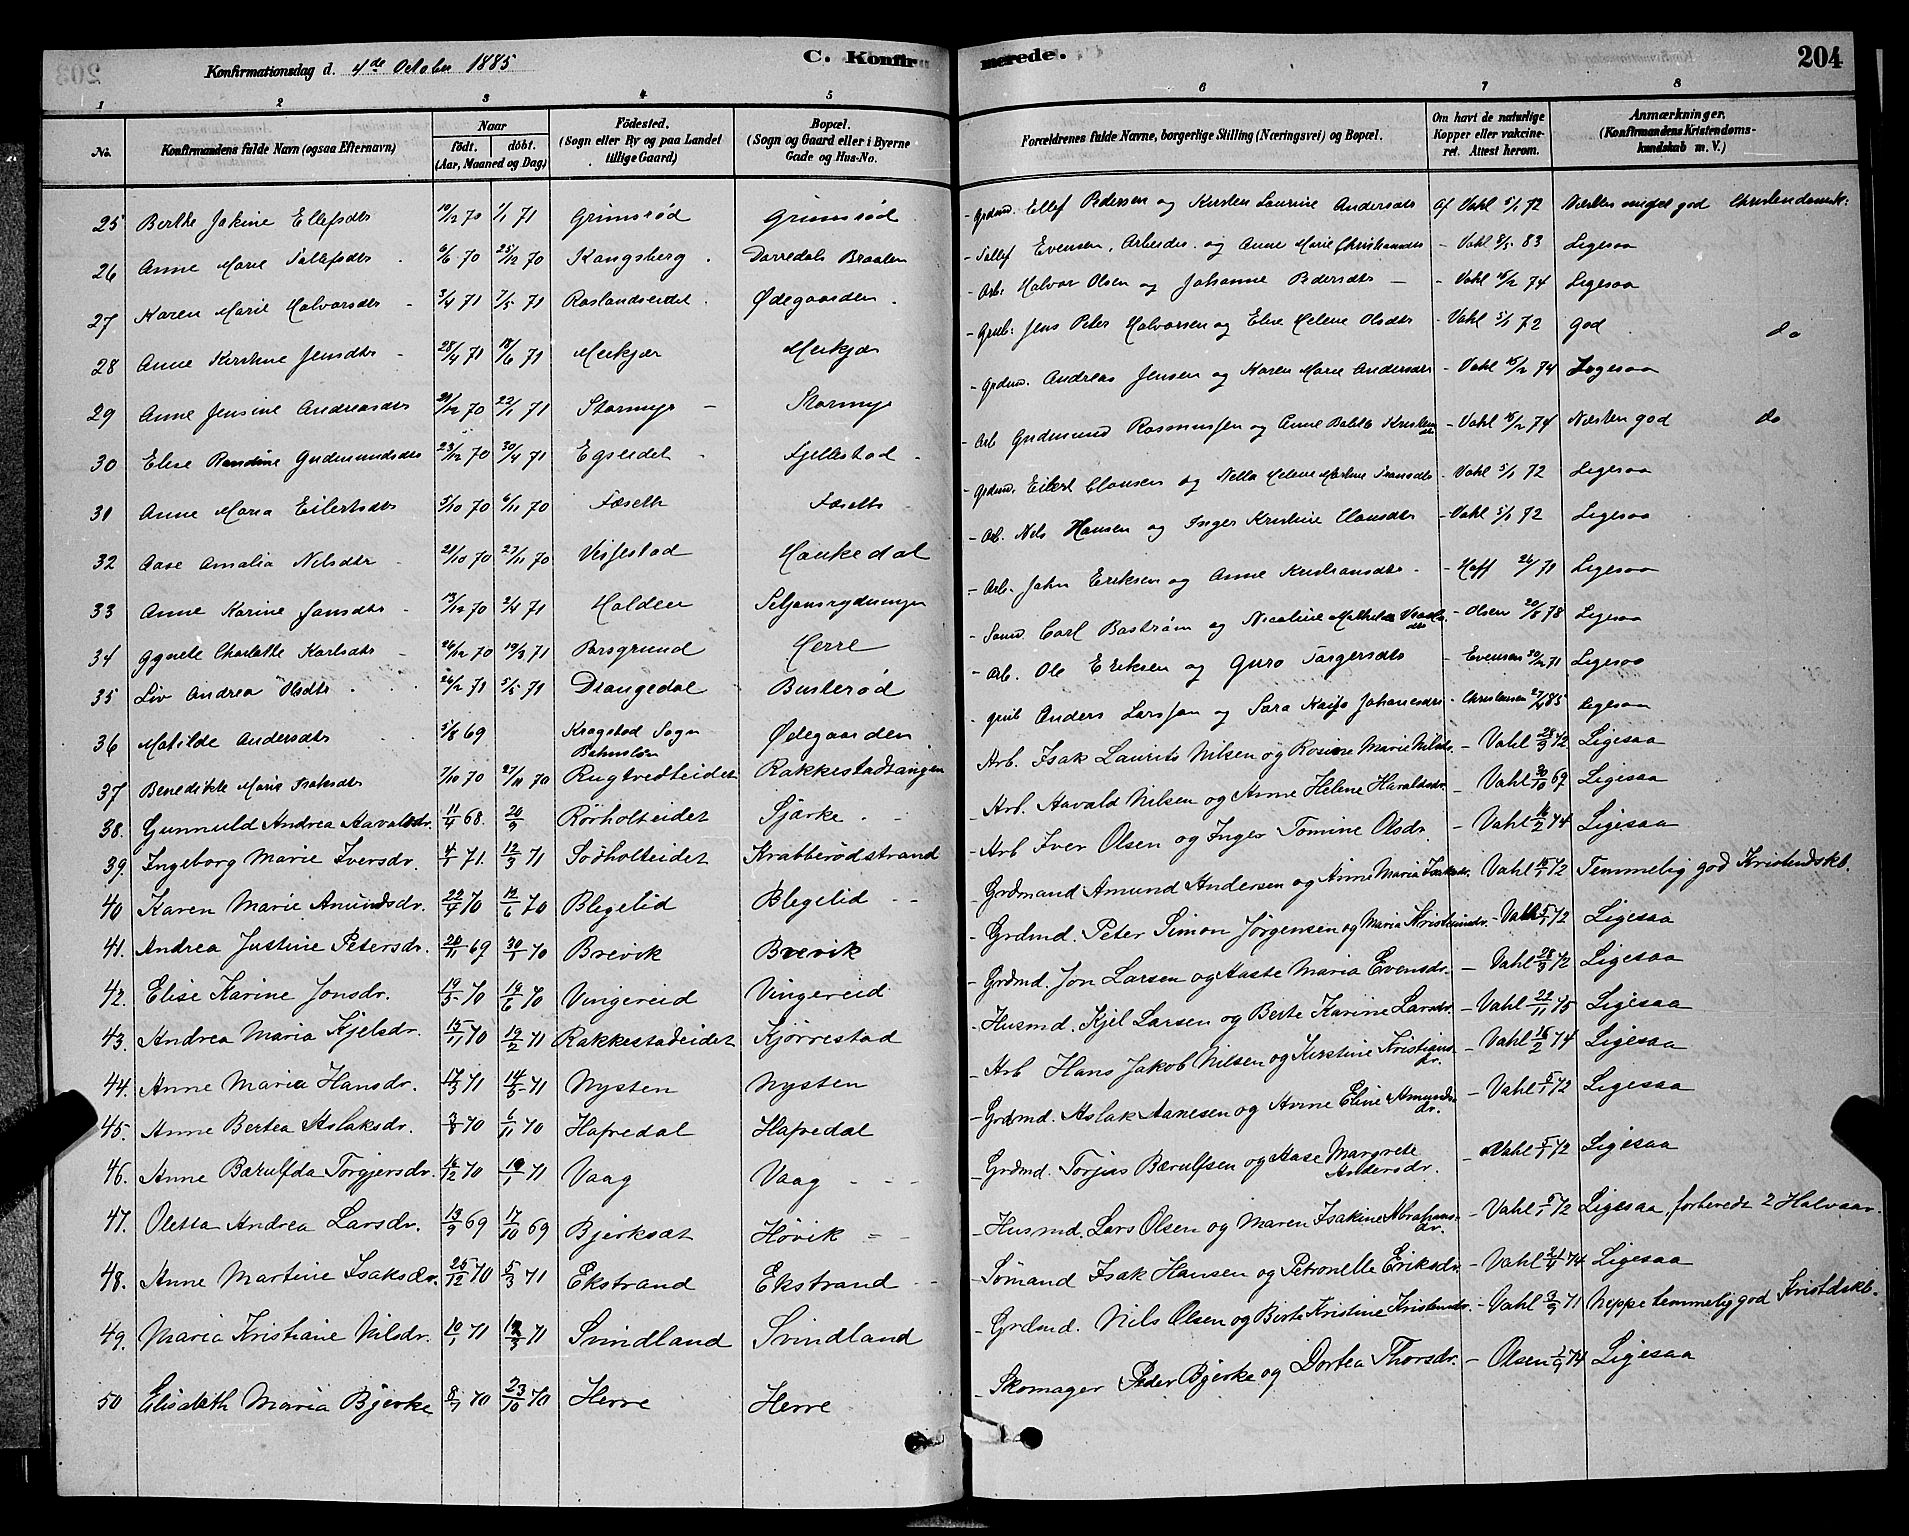 203
Konfirmationsdag d. 4de October 1885
C. Konfirmerede.
204
1 2 3 4 5 6 7 8
No.
Konfirmandens fulde Navn (ogsaa Efternavn)
Naar
født. døbt.
(Aar, Maaned og Dag)
Födested.
(Sogn eller By og paa Landet
tillige Gaard)
Bopæl.
(Sogn og Gaard eller i Byerne
Gade og Hus-No.
Forældrenes fulde Navne, borgerlige Stilling (Næringsvei) og Bopæl.
Om havt de naturlige
Kopper eller vakcine-
ret. Attest herom.
Anmærkninger.
(Konfirmandens Kristendoms-
kundskab m. V.)
25 Berthe Jakine Ellefsdtr 19/12 70 1/1 71 Grimsrød Grimsrød - Grdmd. Ellef Pedersen og Kirsten Laurine Andersdtr Af Vahl 5/1 72 Næsten meget god Christendomsk:
26 Anne Marie Tollefsdtr 6/6 70 25/12 70 Kongsberg Dorredals Braaten - Tollef Evensen, Arbeider og Anne Marie Christiansdtr - Vahl 2/5 83 Ligesaa
27 Karen Marie Halvorsdtr 3/4 71 7/5 71 Roslandseidet Ødegaarden - Arb: Halvor Olsen og Johanne Pedersdtr - Vahl 15/2 74 Ligesaa
28 Anne Kirstine Jensdtr 28/4 71 18/6 71 Meikjær Meikjær - Grub: Jens Peter Halvorsen og Elise Helene Olsdtr - Vahl 5/1 72 God do
29 Anne Jensine Andreasdtr 21/12 70 22/1 71 Stormyr Stormyr - Grdmd. Andreas Jensen og Karen Marie Andersdtr - Vahl 15/2 74 Ligesaa
30 Elise Gudmundsdtr 23/12 70 30/4 71 Egseidet Fjellestad - Arb Gudmund Rasmussen og Anne Kristensdtr - Vahl 15/2 74 Næsten god do
31 Anne Maria Eilertsdtr 5/10 70 6/11 70 Fæseth Fæseth - Grdmd. Eilert Clausen og Nella Helene Fransdtr - Vahl 5/1 72 Ligesaa
32 Aase Amalia Nilsdtr 21/10 70 27/11 70 Vissestad Haukedal - Arb. Nils Hansen og Inger Kristine Clausdtr - Vahl 5/1 72 Ligesaa
33 Anne Karine Jansdtr 13/12 70 2/4 71 Holden Seljansrydningen - Arb. John Eriksen og Anne Kristiansdtr - Hoff 26/ 71 Ligesaa
34 Gynele Charlotte Karlsdtr 26/12 70 19/3 71 Porsgrund Herre - Sømd. Carl Bastrøm og Nicoline - Olsen 20/8 78 Ligesaa
35 Liv Andrea Olsdtr 26/2 71 5/5 71 Drangedal Busterød - Arb. Ole Eriksen og Guro Torgersdtr - Evensen 30/12 71 Ligesaa
36 Matilde Andersdtr 5/8 69 Krogstad Sogn Ødegaarden - Grub Anders Larsson og Sara Johanesdtr - Christensen 27/4 85 Ligesaa
37 Benedikte Marie Isaksdtr 7/10 70 27/11 70 Rugtvedteidet Rakkestadtangen - Arb. Isak Laurits Nilsen og Rosine Marie Nilsdr. - Vahl 28/3 72 Ligesaa
38. Gunnuld Andrea Aavaldsdr. 11/4 68. 20/9 Rørholteidet Sjärke - Arb. Aavald Nilsen og Anne Helene Haraldsdr. - Vahl 30/10 69 Ligesaa
39. Ingeborg Marie Iversdr. 4/1 71. 12/3 71 Sørholteidet Krabberødstrand - Arb Iver Olsen og Inger Tomine Olsdr. - Vahl 16/2 74 Ligesaa
40 Karen Marie Amundsdr. 22/4 70 12/6 70 Blegelid Blegelid - Grdmand Amund Andersen og Anne Maria Isaksdr. - Vahl 15/1 72 Temmelig god Kristendskb.
41. Andrea Justine Petersdr. 20/11 69 30/1 70 Brevik Brevik - Grdmd. Peter Simon Jørgensen og Maria Kristensdr. - Vahl 5/1 72 Ligesaa
42. Elise Karine Jonsdr. 19/5 70 19/6 70 Vingereid Vingereid - Grdmd. Jon Larsen og Aaste Maria Evensdr. - Vahl 28/3 72 Ligesaa
43. Andrea Maria Kjelsdr. 15/11 70 19/2 71 Rakkestadeidet Kjørrestad - Husmd. Kjel Larsen og Berte Karine Larsdr. - Vahl 22/11 75 Ligesaa
44. Anne Maria Hansdr. 17/3 71 14/5 71 Nysten Nysten - Arb Hans Jakob Nilsen og Kirstine Kristiansdr. - Vahl 16/2 74 Ligesaa
45. Anne Bertea Aslaksdr. 3/8 70 6/11 70 Hafredal Hafredal - Grdmd. Aslak Aanesen og Anne Eline Amundsdr. - Vahl 5/1 72 Ligesaa
46. Anne Bærulfda Torgjersdr. 16/12 70 19/1 71 Vaag Vaag - Grdmd. Torjus Bærulfsen og Aase Margrete Andersdr. - Vahl 5/1 72 Ligesaa
47. Oletta Andrea Larsdr. 13/9 69 17/10 69 Bjerksæt Høvik - Husmd. Lars Olsen og Maren Isakine Abrahamsdr. - Vahl 5/1 72 Ligesaa, forberedt 2 Halvaar.
48. Anne Martine Isaksdr. 25/12 70 5/3 71 Ekstrand Ekstrand - Sømand Isak Hansen og Petronelle Eriksdr. - Vahl 21/4 74 Ligesaa
49. Maria Kristiane Nilsdr. 10/1 71 12/3 71 Svindland Svindland - Grdmd. Nils Olsen og Berte Kristine Kristensdr. - Vahl 3/9 71 Neppe temmelig god Kristdskb.
50 Elisabeth Maria Bjerke 8/7 70 23/10 70 Herre Herre - Skomager Peder Bjerke og Dortea Thorsdr. - Olsen 1/9 74 Ligesaa